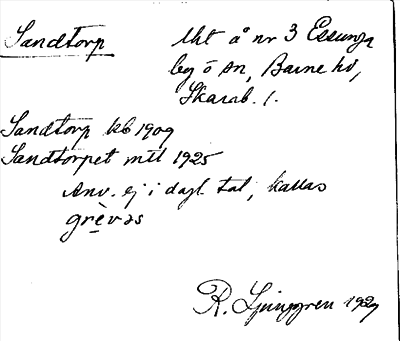 Sandtorp
Uht å nr 3 Essunga
by o sn, Barne hd,
Skarab. l.
Sandtorp kb 1909
Sandtorpet mtl 1925
Anv. ej i dagl. tal, kallas
grèvəs
R. Ljunggren 1929